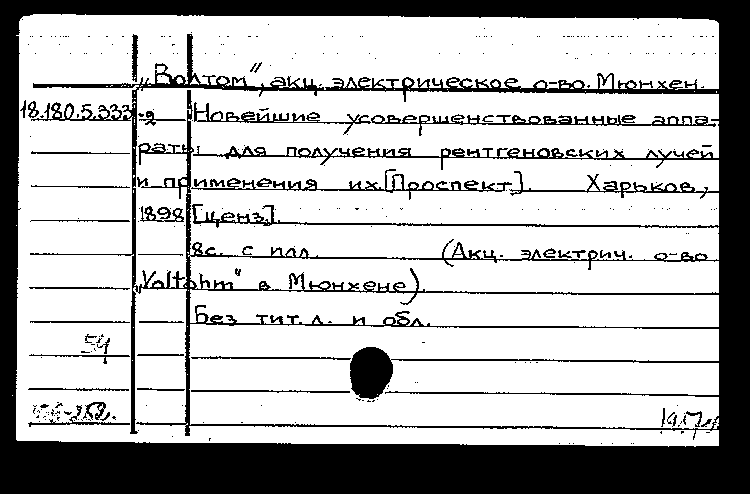 „Волтом“, акц. электрическое о-во. Мюнхен.
18.180.5.333 -2 Новейшие усовершенствованные аппа-
раты для получения рентгеновских лучей
и применения их.[Проспект]. Харьков,
1898 [ценз].
8с. с илл. (Акц. электрич. о-во
„Voltohm“ в Мюнхене).
Без тит.л. и обл.
54